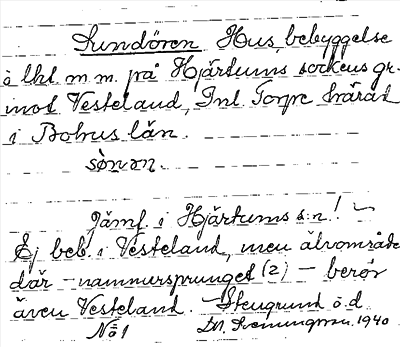 Sundören Hus, bebyggelse
å lht m.m. på Hjärtums sockens gr.
mot Västeland, Inl Torpe härad
i Bohus län.
sö̀nan.
Jämf. i Hjärtums s:n!
Ej beb. i Västeland, men älvområde
där – namnursprunget (2) – berör
även Västeland. Stengrund ö.d.
No 1 1940